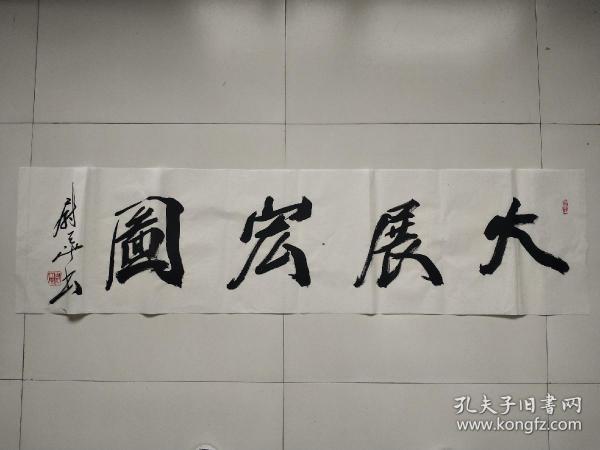 大展宏圖
孔夫子旧書网
www.kongfz.com